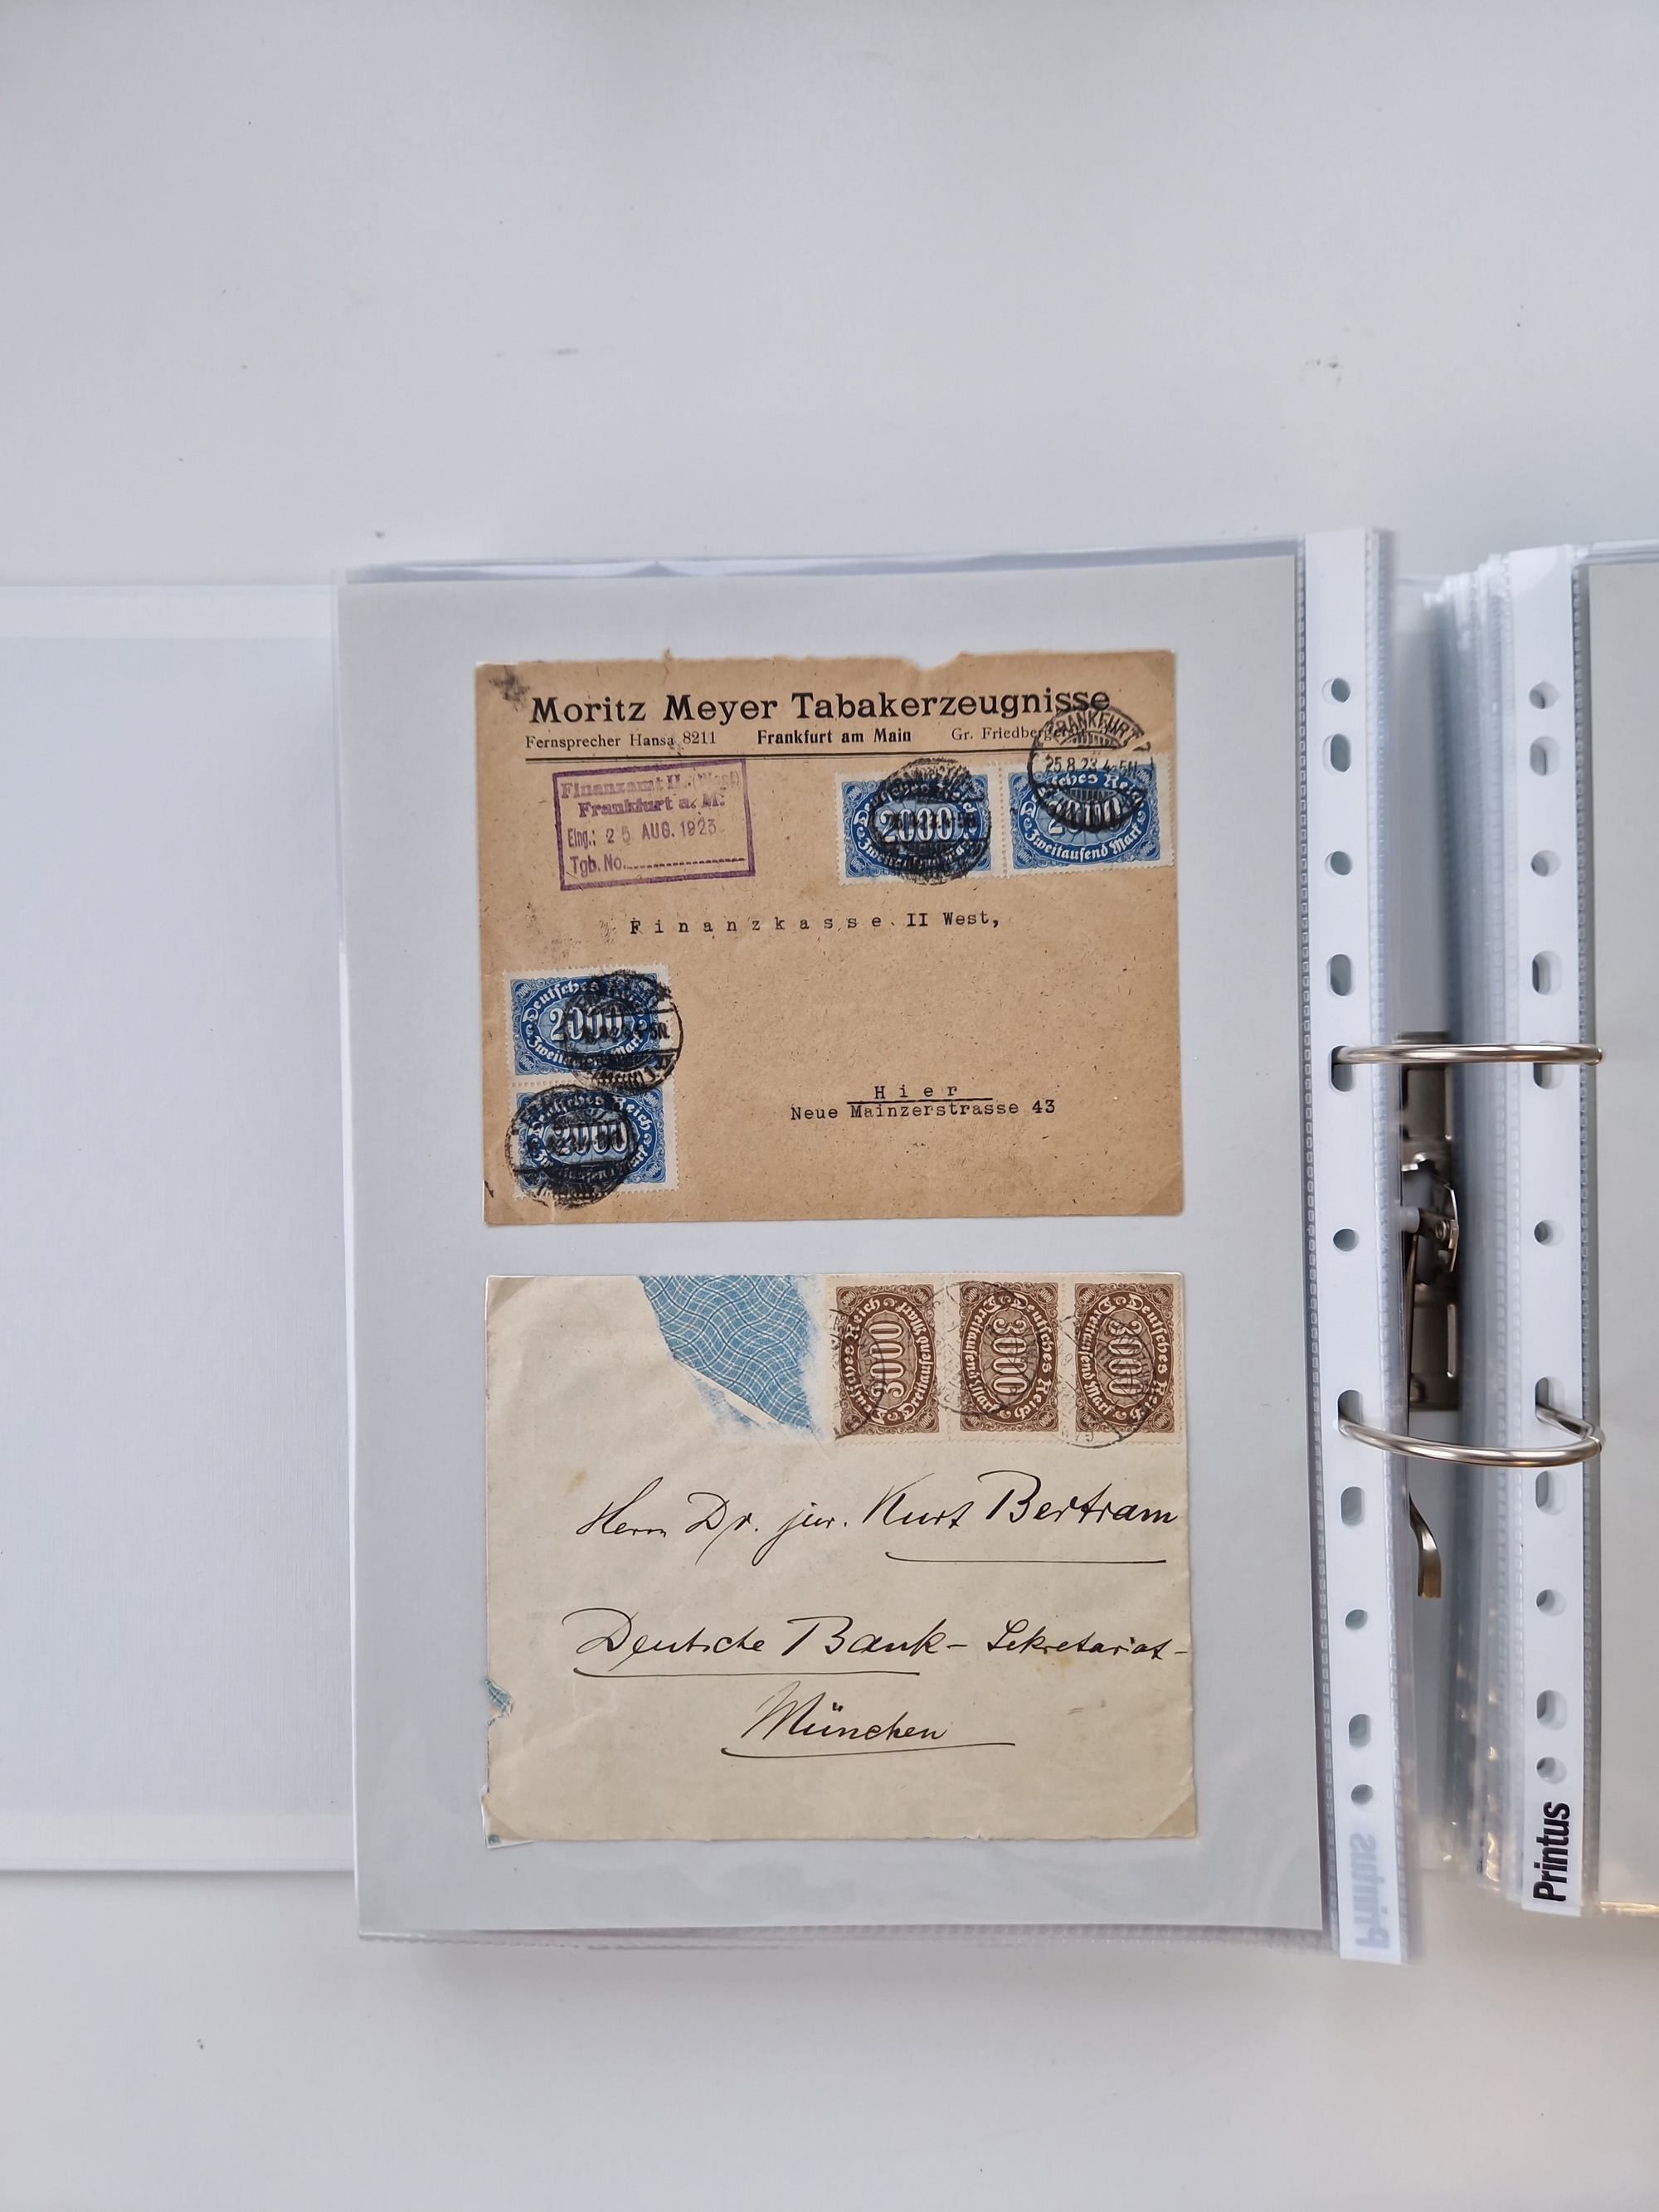 Moritz Meyer Tabakerzeugnisse
Fernsprecher Hansa 8211 Frankfurt am Main Gr. Friedberger
FRANKFURT
25.8.23.4-5N
Finanzamt II. (West)
Frankfurt a. M.
Eing.: 25 AUG. 1923
Tgb. No.
Deutsches Reich
2000
Zweitausend Mark
Deutsches Reich
2000
Zweitausend Mark
Finanzkasse II West,
Deutsches Reich
2000
Zweitausend Mark
Deutsches Reich
2000
Zweitausend Mark
Hier
Neue Mainzerstrasse 43
Deutsches Reich
3000
Dreitausend Mark
Deutsches Reich
3000
Dreitausend Mark
Deutsches Reich
3000
Dreitausend Mark
Herrn Dr. jur. Kurt Bertram
Deutsche Bank - Sekretariat -
München
Printus
Printus